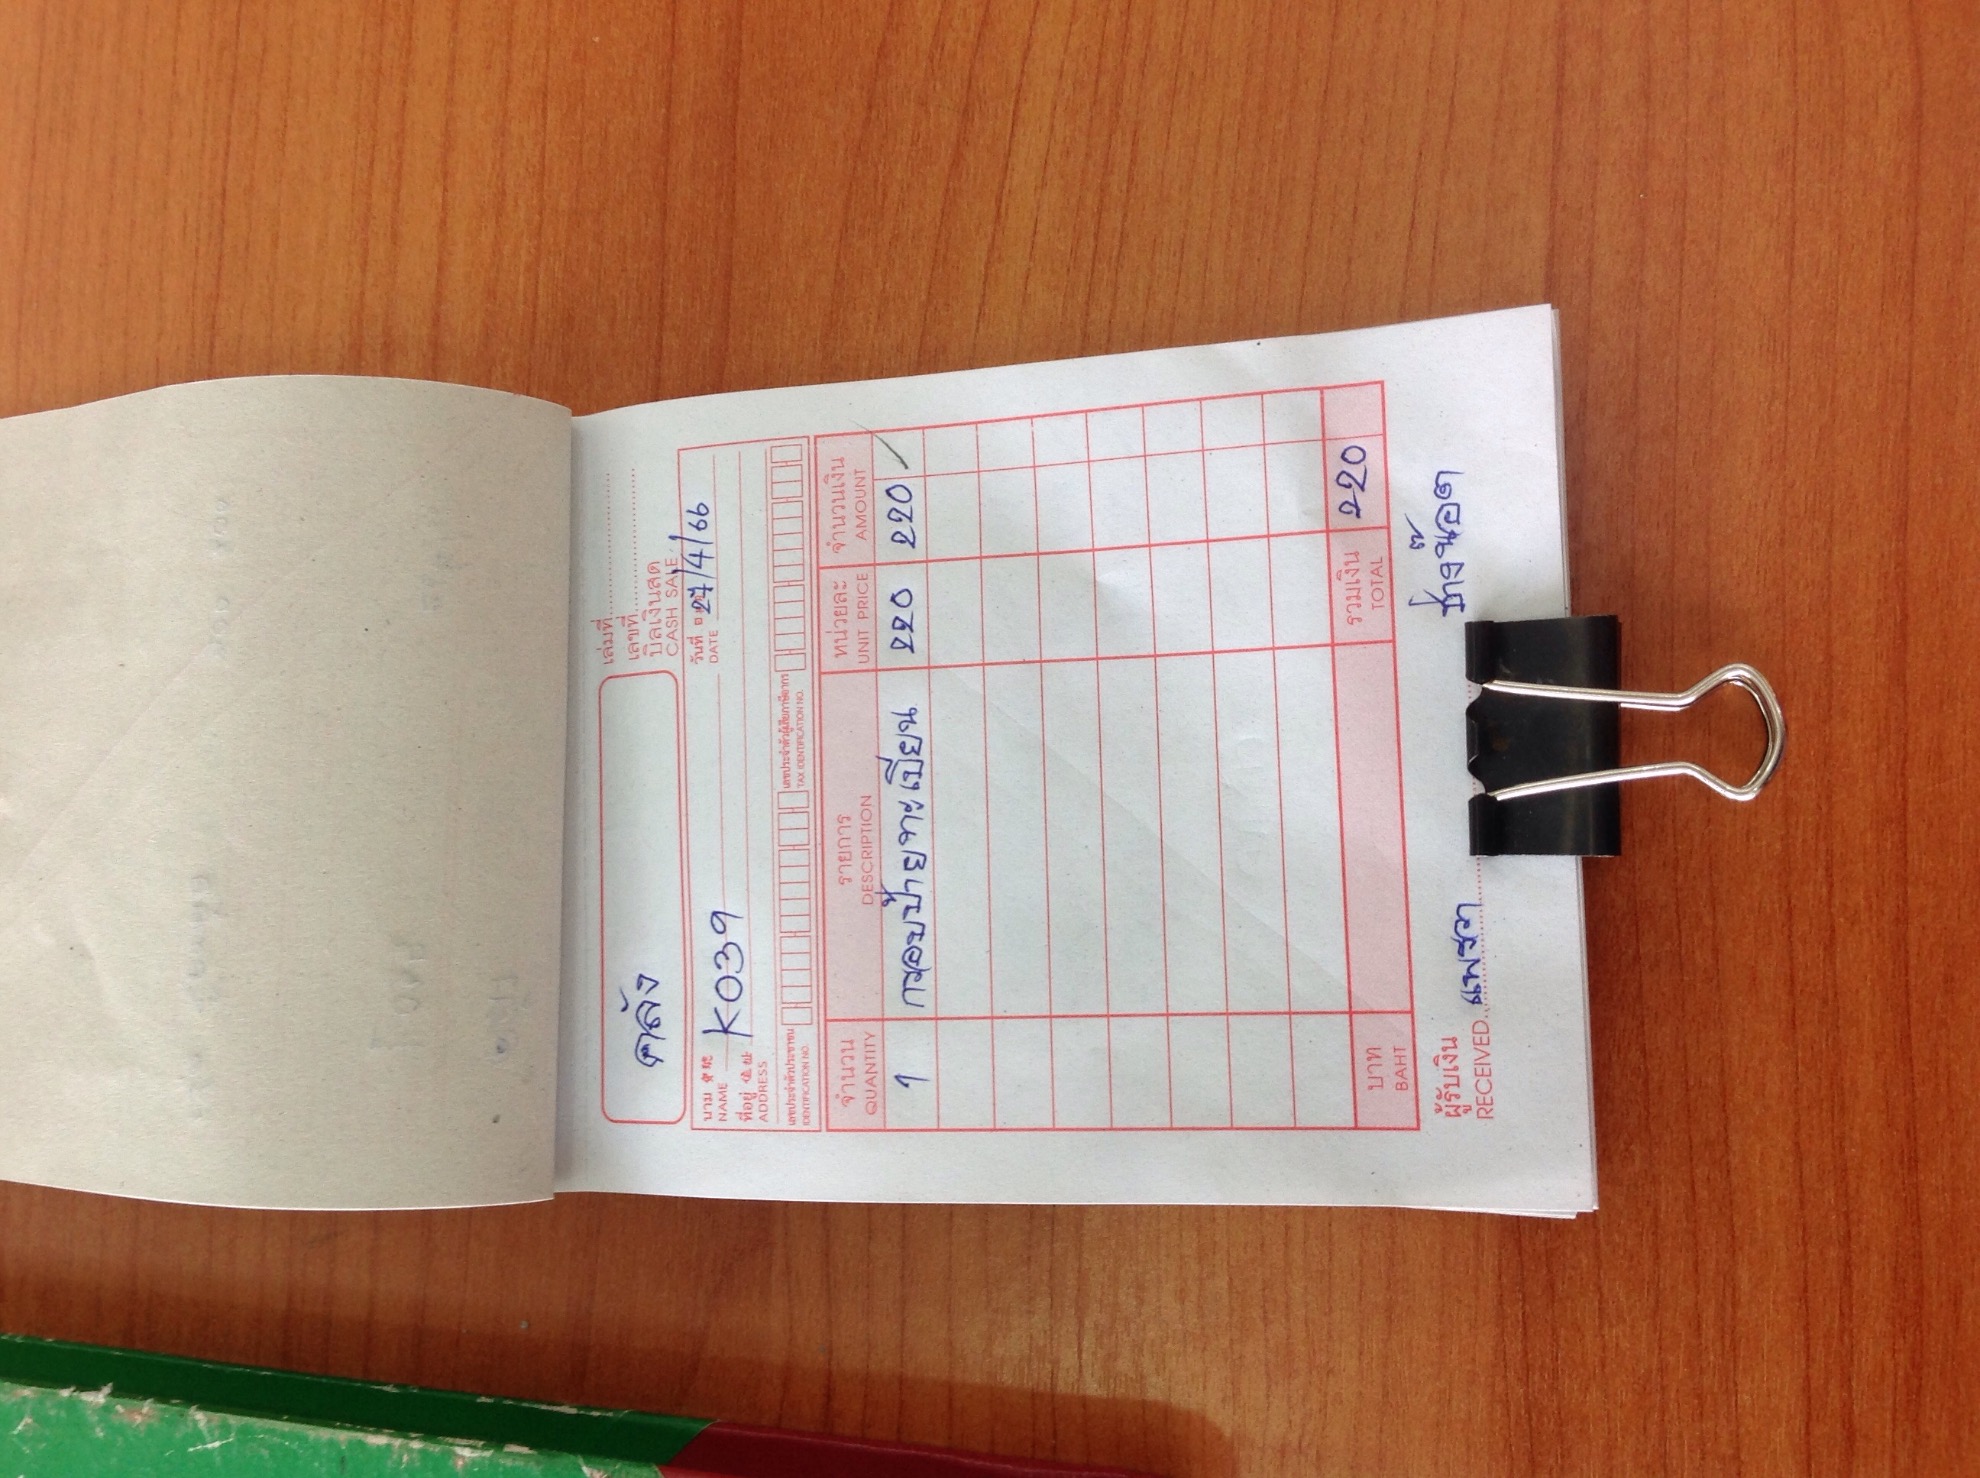 คลัง
เล่มที่
เลขที่
บิลเงินสด
CASH SALE
นาม NAME K039
วันที่ DATE 27/4/66
ที่อยู่ ADDRESS
เลขประจำตัวประชาชน IDENTIFICATION NO.
เลขประจำตัวผู้เสียภาษีอากร TAX IDENTIFICATION NO.
จำนวน รายการ หน่วยละ จำนวนเงิน
QUANTITY DESCRIPTION UNIT PRICE AMOUNT
1 กรอบป้ายทะเบียน 220 220
บาท BAHT รวมเงิน TOTAL 220
ผู้รับเงิน
RECEIVED แพรวา ช่างน๊อต